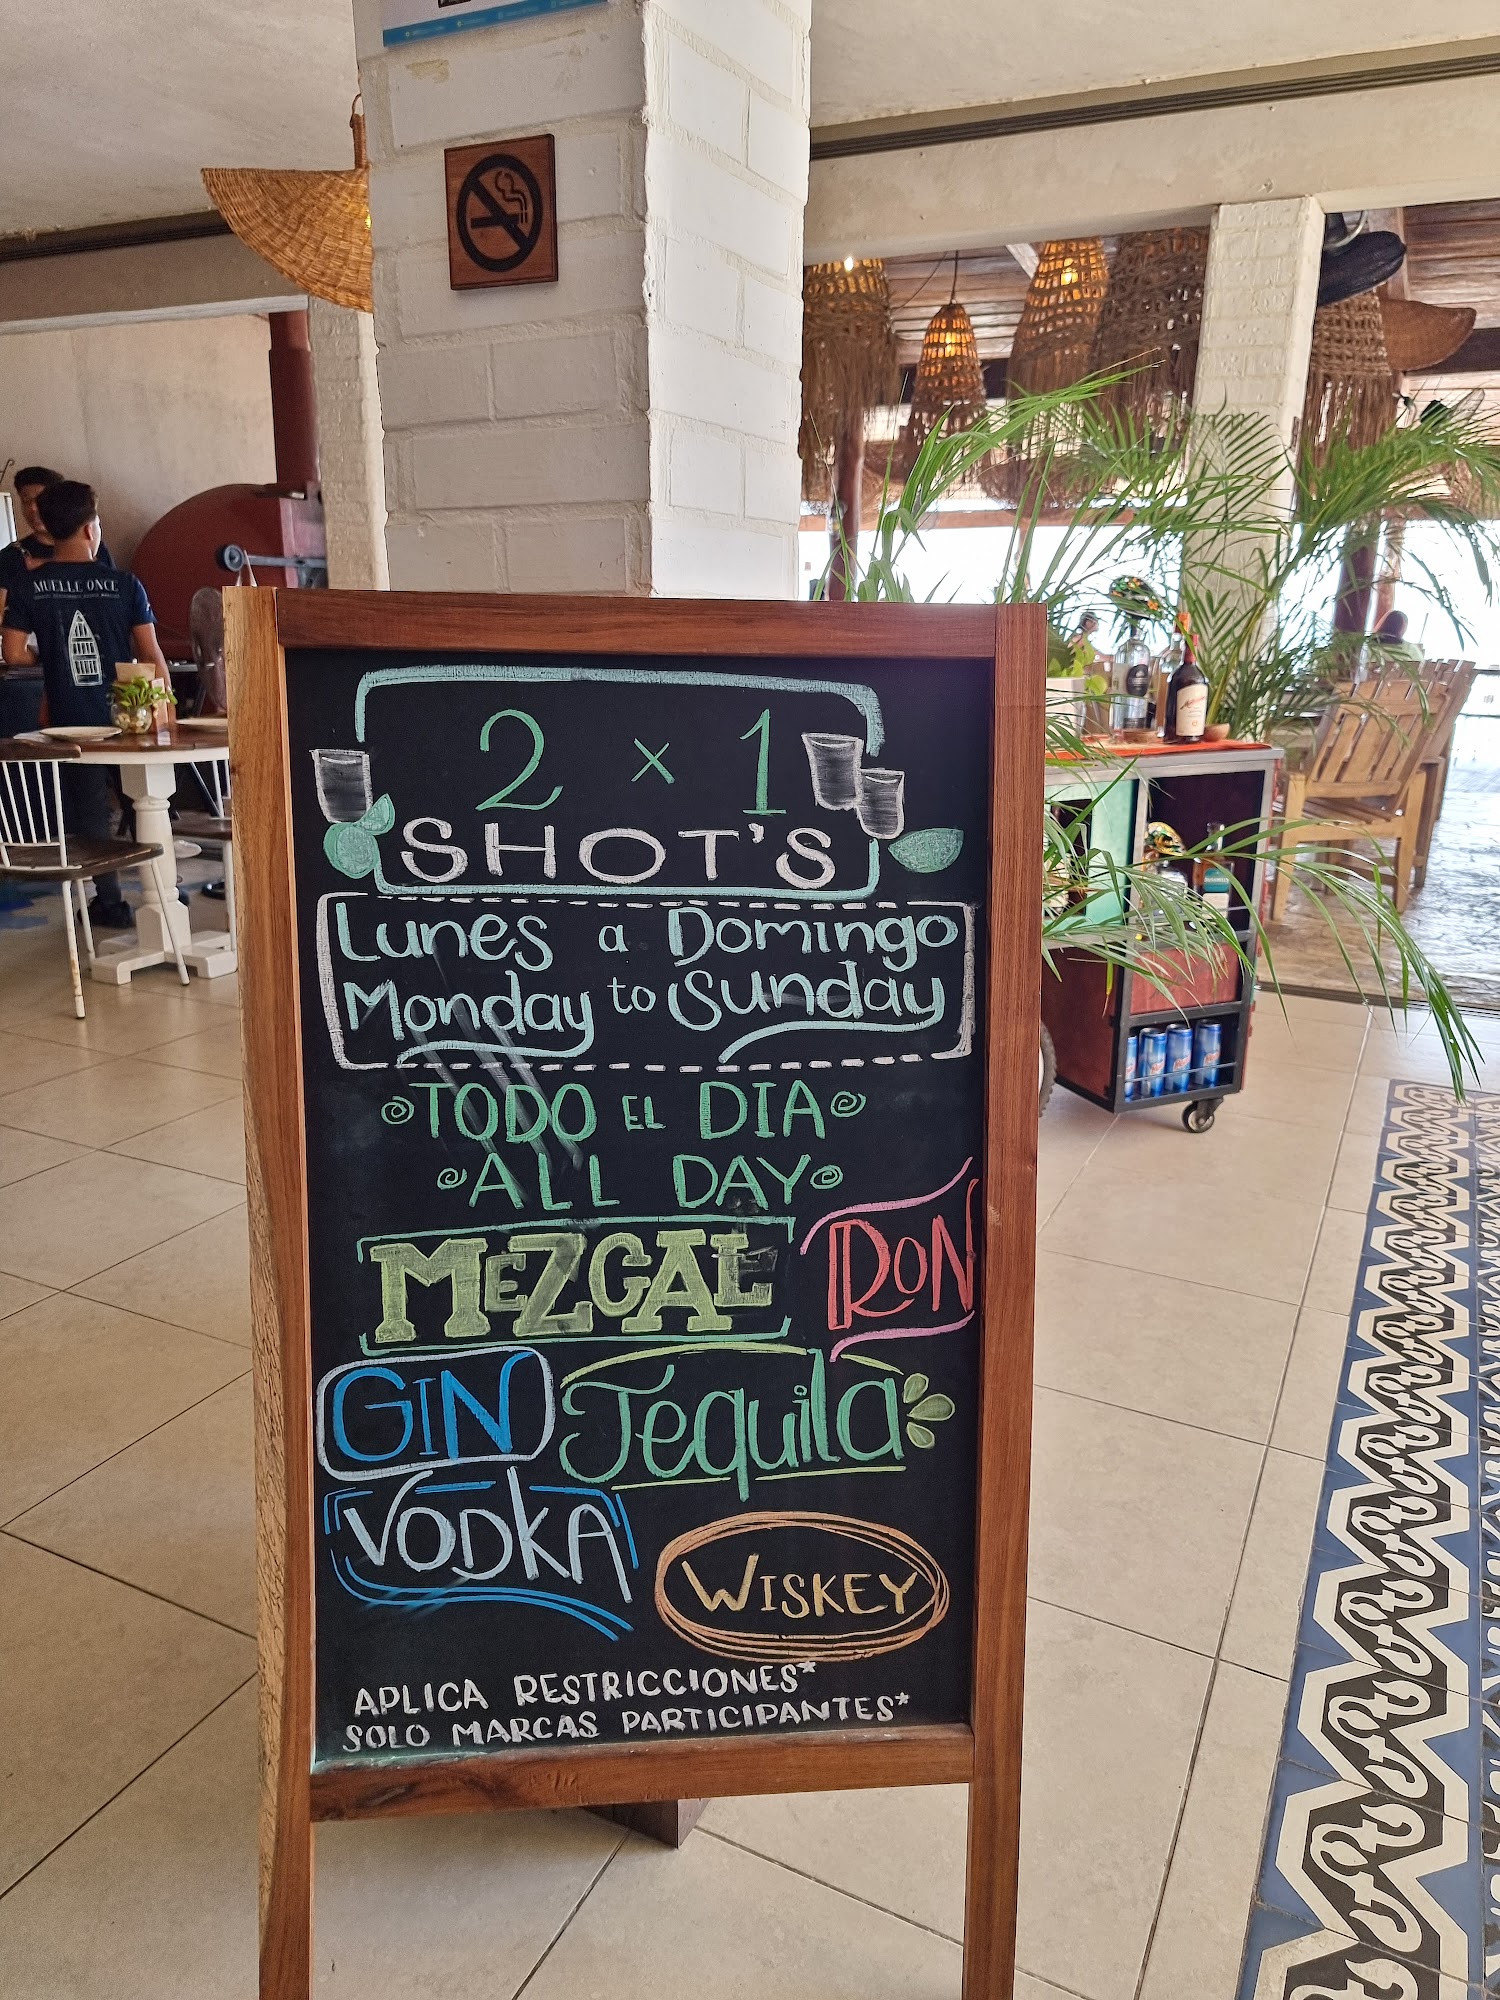 MUELLE ONCE
2 x 1
SHOT'S
Lunes a Domingo
Monday to Sunday
TODO EL DIA
ALL DAY
MEZCAL
RON
GIN
Tequila
VODKA
WISKEY
APLICA RESTRICCIONES*
SOLO MARCAS PARTICIPANTES*